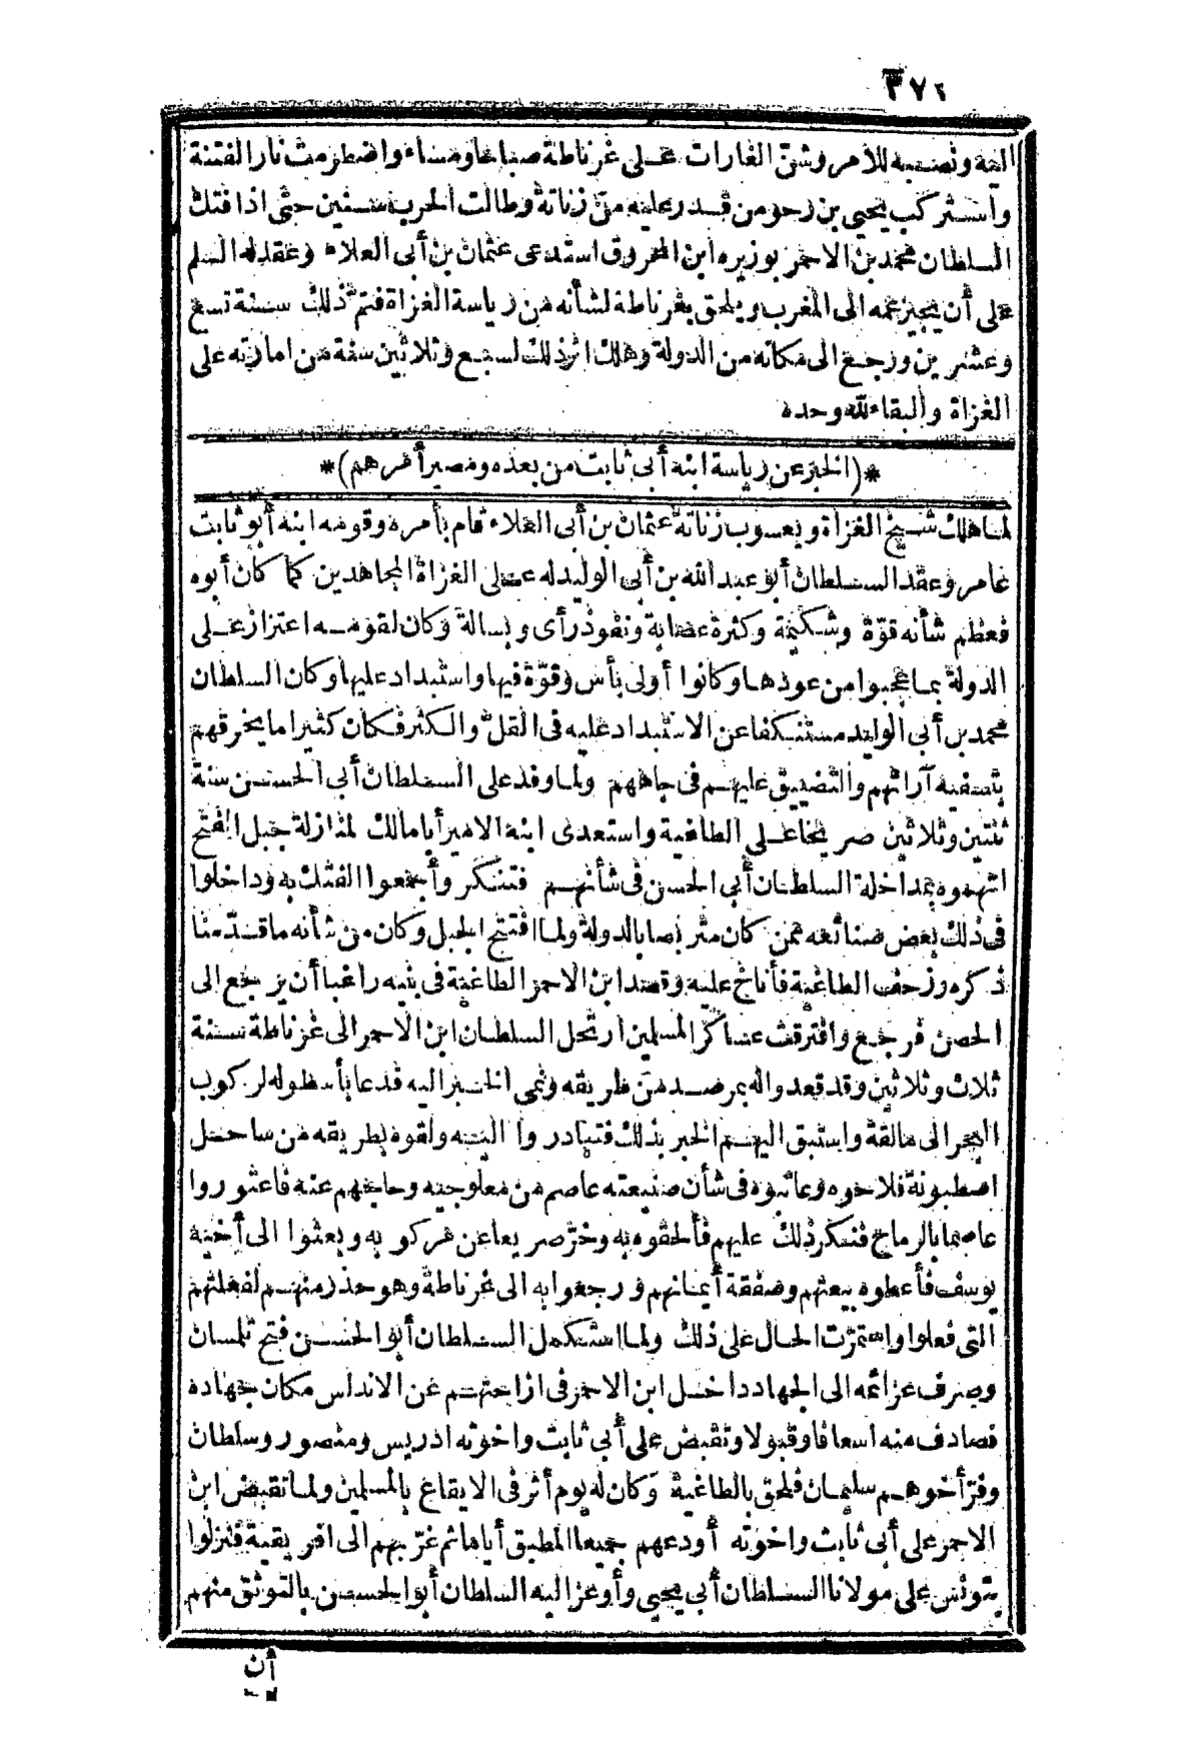 ٣٧٢
اليه ونصبه للأمر وشن الغارات على غرناطة صباحا ومساء واضطرمت نار الفتنة
واستركب يحيى بن رحو من قدر عليه من زناتة وطالت الحرب سنين حتى اذا فتك
السلطان محمد بن الاحمر بوزيره ابن المحروق استدعى عثمان بن أبى العلاء وعقد له السلم
على أن يجيز عمه الى المغرب ويلحق بغرناطة لشأنه من رياسة الغزاة فتم ذلك سنة تسع
وعشرين ورجع الى مكانه من الدولة وهلك اثر ذلك لسبع وثلاثين سنة من امارته على
الغزاة والبقاء لله وحده
*(الخبر عن رياسة ابنه أبى ثابت من بعده ومصير أمرهم)*
لما هلك شيخ الغزاة ويعسوب زناتة عثمان بن أبى العلاء قام بأمره وقومه ابنه أبو ثابت
عامر وعقد السلطان أبو عبد الله بن أبى الوليد له على الغزاة المجاهدين كما كان أبوه
فعظم شأنه قوّة وشكيمة وكثرة عصابة ونفوذ رأى وبسالة وكان لقومه اعتزاز على
الدولة بما عجبوا من عودها وكانوا أولى بأس وقوّة فيها واستبداد عليها وكان السلطان
محمد بن أبى الوليد مستنكفا عن الاستبداد عليه فى القل والكثر فكان كثيرا ما يخرقهم
بتسفيه آرائهم والتضييق عليهم فى جاههم ولما وفد على السلطان أبى الحسن سنة
ثنتين وثلاثين صريخا على الطاغية واستعدى ابنه الامير أبا مالك لمنازلة جبل الفتح
اتهموه بمداخلة السلطان أبى الحسن فى شأنهم فتنكر وأجمعوا الفتك به وداخلوا
فى ذلك بعض صنائعه ممن كان متربصا بالدولة ولما افتتح الجبل وكان من شأنه ما قدّمنا
ذكره وزحف الطاغية فأناخ عليه وقصد ابن الاحمر الطاغية فى بنيه راغبا أن يرجع الى
الحصن فرجع وافترقت عساكر المسلمين ارتحل السلطان ابن الاحمر الى غرناطة سنة
ثلاث وثلاثين وقد قعدوا له بمرصد من طريقه ونمى الخبر اليه فدعا بأسطوله لركوب
البحر الى مالقة واستبق اليهم الخبر بذلك فتبادروا اليه ولقوه بطريقه من ساحل
اصطبونة فلاحوه وعاتبوه فى شأن صنيعته عاصم من معلوجيه وحاجهم عنه فاعتوروا
عاصما بالرماح فنكر ذلك عليهم فألحقوه به وخرّ صريعا عن مركوبه وبعثوا الى أخيه
يوسف فأعطوه بيعتهم وصفقة أيمانهم ورجعوا به الى غرناطة وهو حذر منهم لفعلتهم
التى فعلوا واستمرّت الحال على ذلك ولما استكمل السلطان أبو الحسن فتح تلمسان
وصرف عزائمه الى الجهاد داخل ابن الاحمر فى ازاحتهم عن الاندلس مكان جهاده
فصادف منه اسعافا وقبولا وتقبض على أبى ثابت واخوته ادريس ومنصور وسلطان
وفرّ أخوهم سليمان فلحق بالطاغية وكان له يوم أثر فى الايقاع بالمسلمين ولما تقبض ابن
الاحمر على أبى ثابت واخوته أودعهم جميعا المطبق أياما ثم غرّبهم الى افريقية فنزلوا
بتونس على مولانا السلطان أبى يحيى وأوعز اليه السلطان أبو الحسن بالتوثق منهم
أن